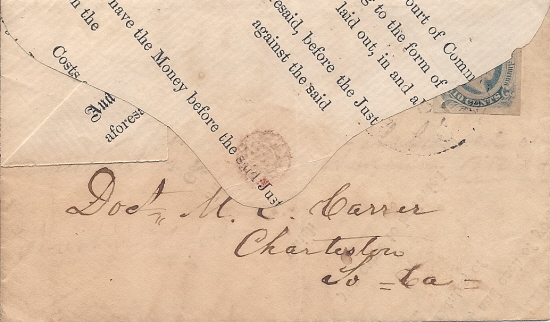 have the Money before the said Just
n the
Costs
And
aforess
ourt of Comm
g to the form of
laid out, in and a
esaid, before the Just
against the said
CENTS
Doct M. C. Carrer
Charleston
So = Ca =